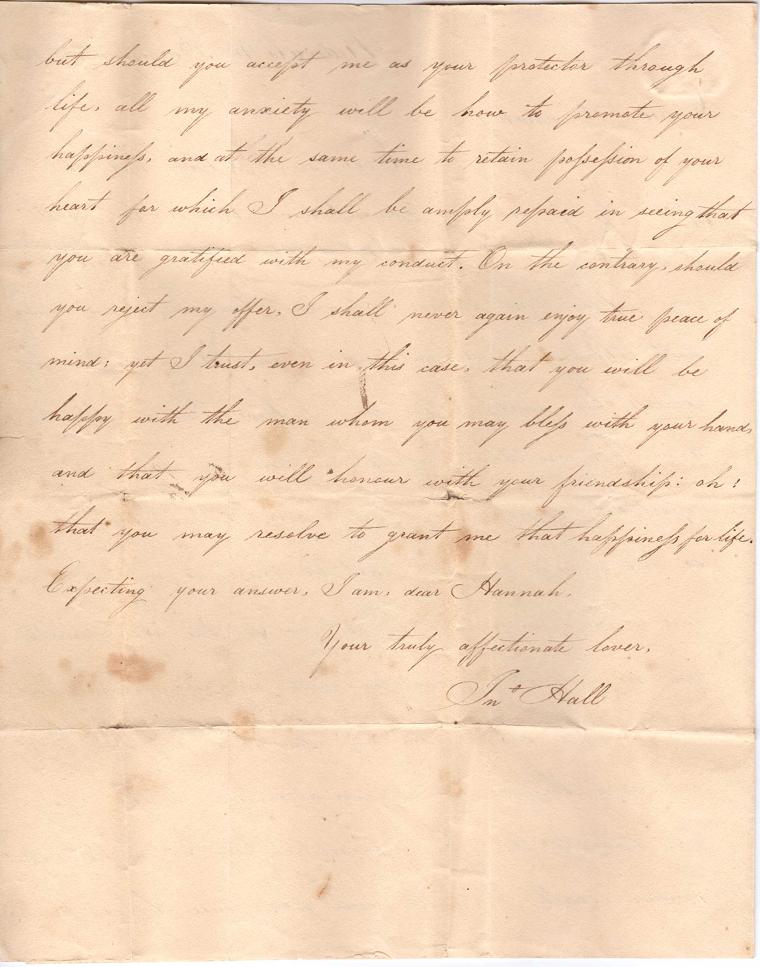 but should you accept me as your protector through
life, all my anxiety will be how to promote your
happineſs, and at the same time to retain poſseſsion of your
heart for which I shall be amply repaid in seeing that
you are gratified with my conduct. On the contrary, should
you reject my offer, I shall never again enjoy true peace of
mind: yet I trust, even in this case, that you will be
happy with the man whom you may bleſs with your hand,
and that you will honour with your friendship: oh!
that you may resolve to grant me that happineſs for life.
Expecting your answer, I am, dear Hannah,
Your truly affectionate lover,
Jnº Hall